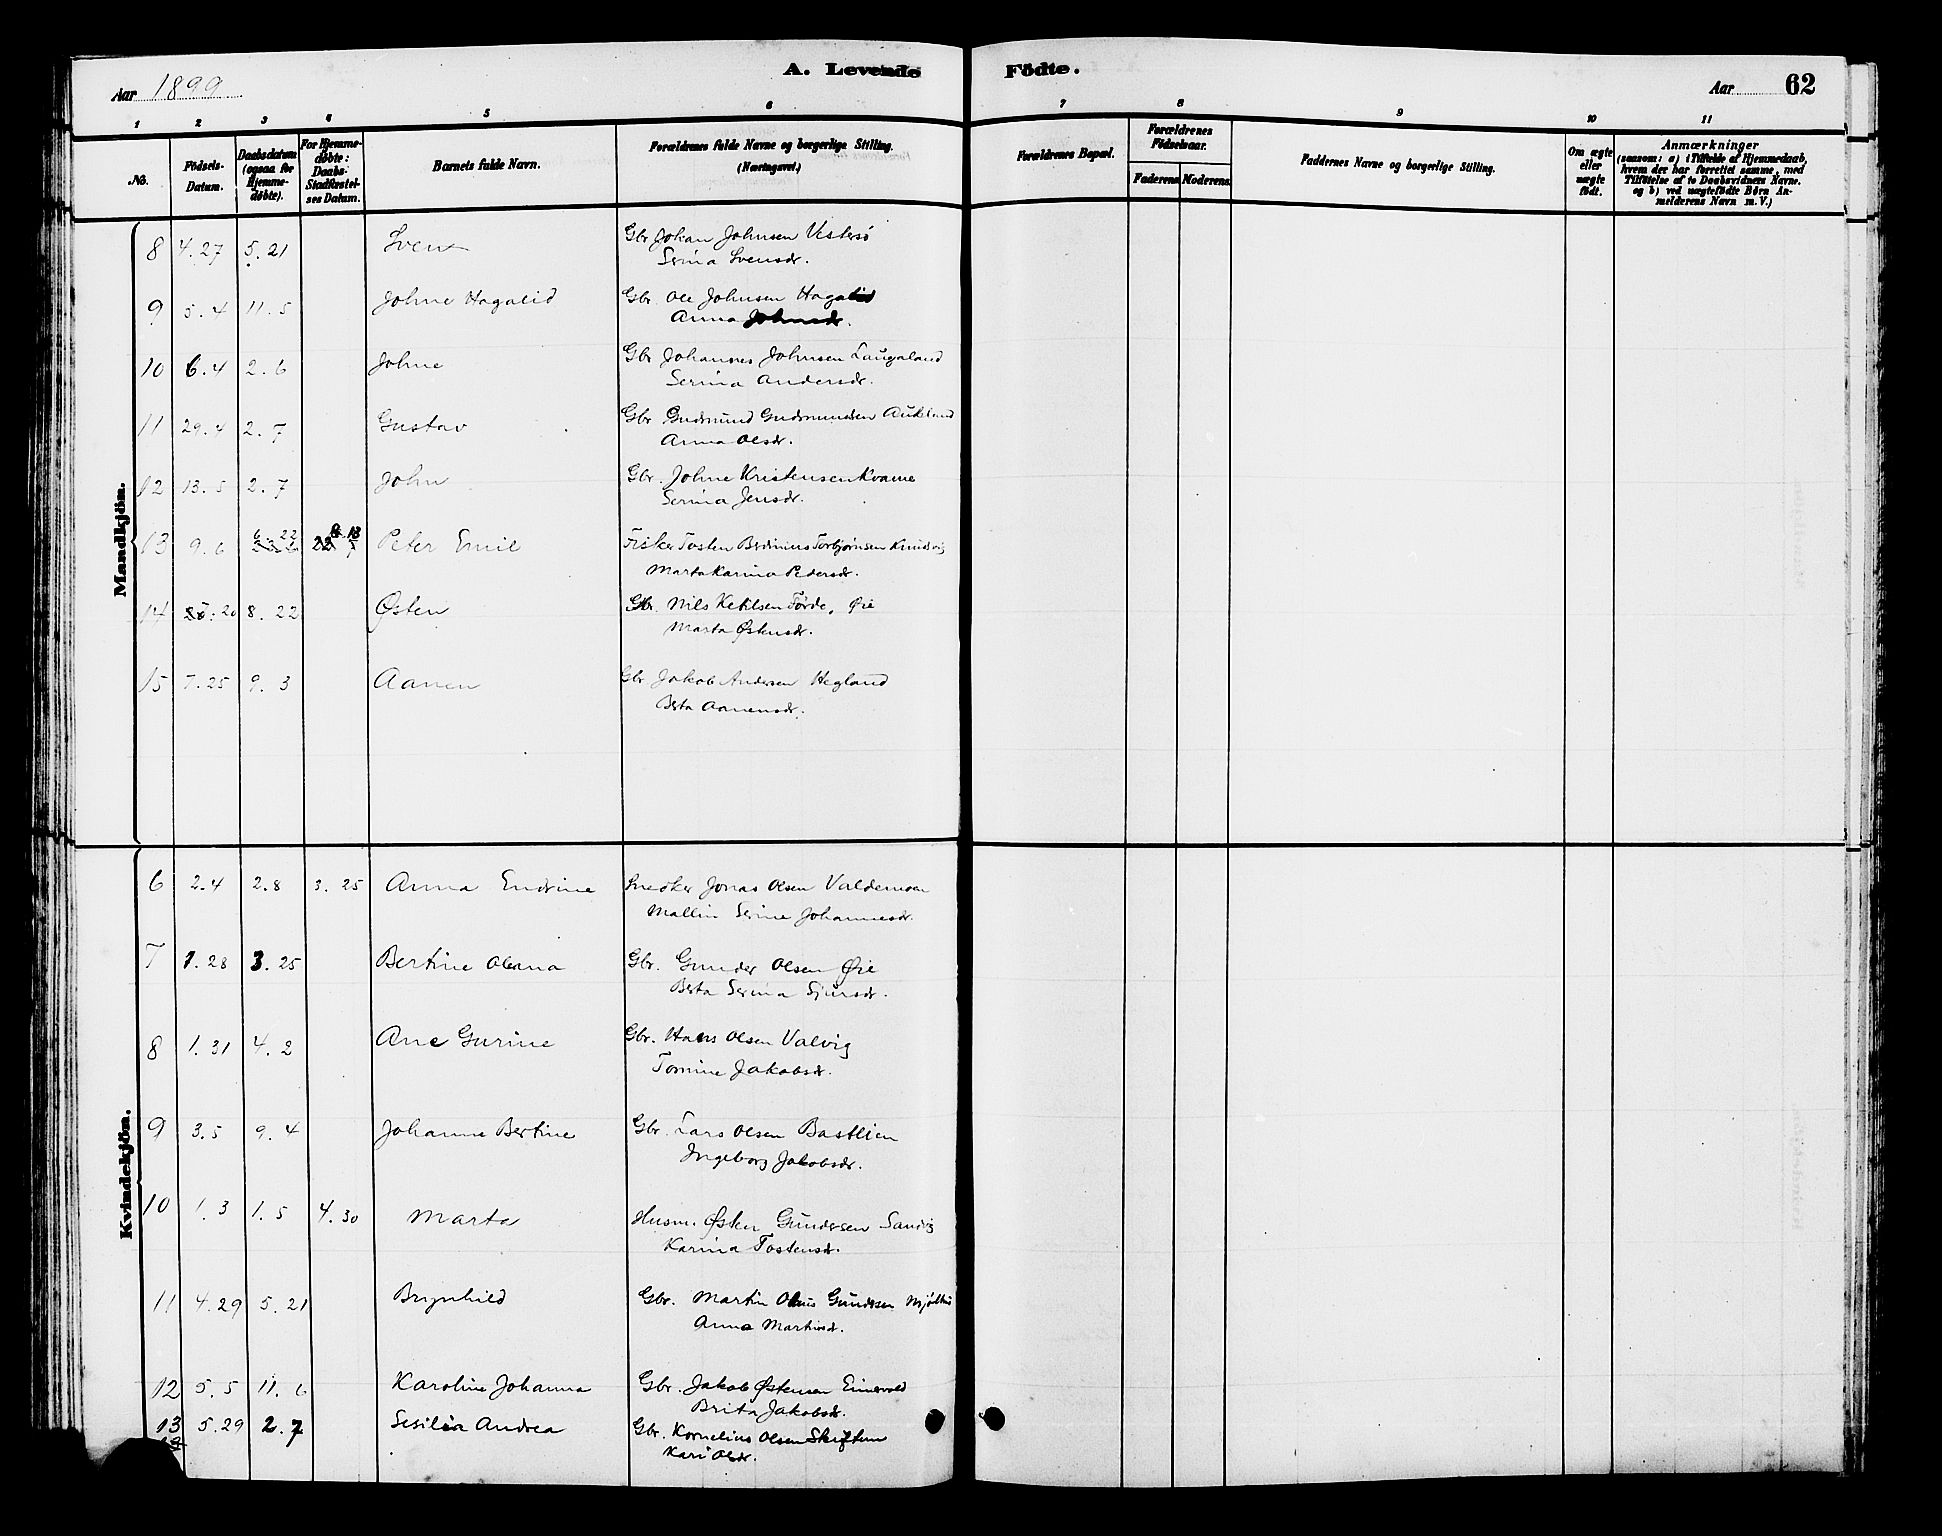 A. Levende Födte.
Aar 1899
Aar 62
1 2 3 4 5 6 7 8 9 10 11
No.
Födsels-Datum.
Daabsdatum (ogsaa for Hjemme-döbte).
For Hjemme-døbte: Daabs-Stadfæstel-ses Datum.
Barnets fulde Navn.
Forældrenes fulde Navne og borgerlige Stilling. (Næringsvei.)
Forældrenes Bopæl.
Forældrenes Födselsaar.
Faderens. Moderens.
Faddernes Navne og borgerlige Stilling.
Om ægte eller uægte födt.
Anmærkninger
(saasom: a) i Tilfælde af Hjemmedaab, hvem der har forrettet samme, med Tilføielse af to Daabsvidners Navne. og b) ved uægtefödte Börn An-melderens Navn m. V.)
Mandkjön.
8 4.27 5.21 Sven Gbr Johan Johnsen Vestersö
Serina Svensdr.
9 5.4 11.5 Johne Hagalid Gbr. Ole Johnsen Hagalid
Anna Johnsdr.
10 6.4 2.6 Johne Gbr Johannes Johnsen Laugaland
Serina Andersdr.
11 29.4 2.7 Gustav Gbr Gudmund Gudmundsen Aukland
Anna Olsdr.
12 13.5 2.7 John Gbr. Johne Kristensen Kvame
Serina Jensdr.
13 9.6 6.22 Peter Emil Fisker Tosten Berdinius Torbjørnsen Knudsvig
Marta Karina Pedersdr.
14 20 8.22 Østen Gbr. Nils Ketilsen Førde, Øie
Marta Østensdr.
15 7.25 9.3 Aanen Gbr Jakob Andersen Hegland
Berta Aanensdr.
Kvindekjön.
6 2.4 2.8 3.25 Anna Endrine Snedker Jonas Olsen Valdemoen
Mallin Serine Johannesdr.
7 1.28 3.25 Bertine Olena Gbr. Gunder Olsen Øie
Berta Serina Sjursdr.
8 1.31 4.2 Ane Gurine Gbr. Hans Olsen Valvig
Tomine Jakobsdr.
9 3.5 9.4 Johanne Bertine Gbr. Lars Olsen Bastlien
Ingeborg Jakobsdr.
10 1.3 1.5 4.30 Marta Husm. Østen Gundersen Sandvig
Karina Tostensdr.
11 4.29 5.21 Brynhild Gbr. Martin Olaus Gundersen
Anna Martinsdr.
12 5.5 11.6 Karoline Johanna Gbr. Jakob Østensen Eimervold
Brita Jakobsdr.
13 5.29 2.7 Sesilia Andrea Gbr. Kornelius Olsen Skiftun
Kari Olsdr.